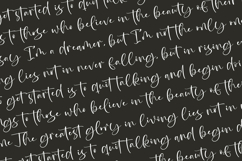 get started is to quit talking
to those who believe in the beauty of their
say I'm a dreamer, but I'm not the only
lies not in never falling, but in rising
get started is to quit talking and begin
to those who believe in the beauty of their
The greatest glory in living lies not in
started is to quit talking and begin
the beauty of